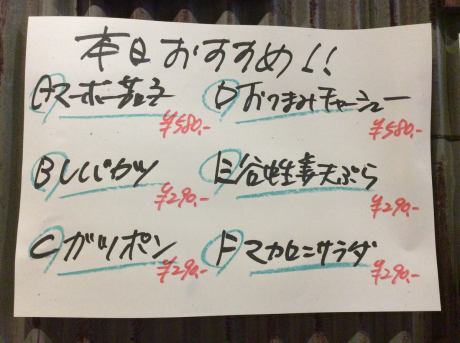 本日おすすめ!!
Aマーボー茄子
¥580,-
Bレバカツ
¥290,-
Cガツポン
¥290,-
Dおつまみチャーシュー
¥580,-
E谷性妻天ぷら
¥290,-
Fマカロニサラダ
¥290,-